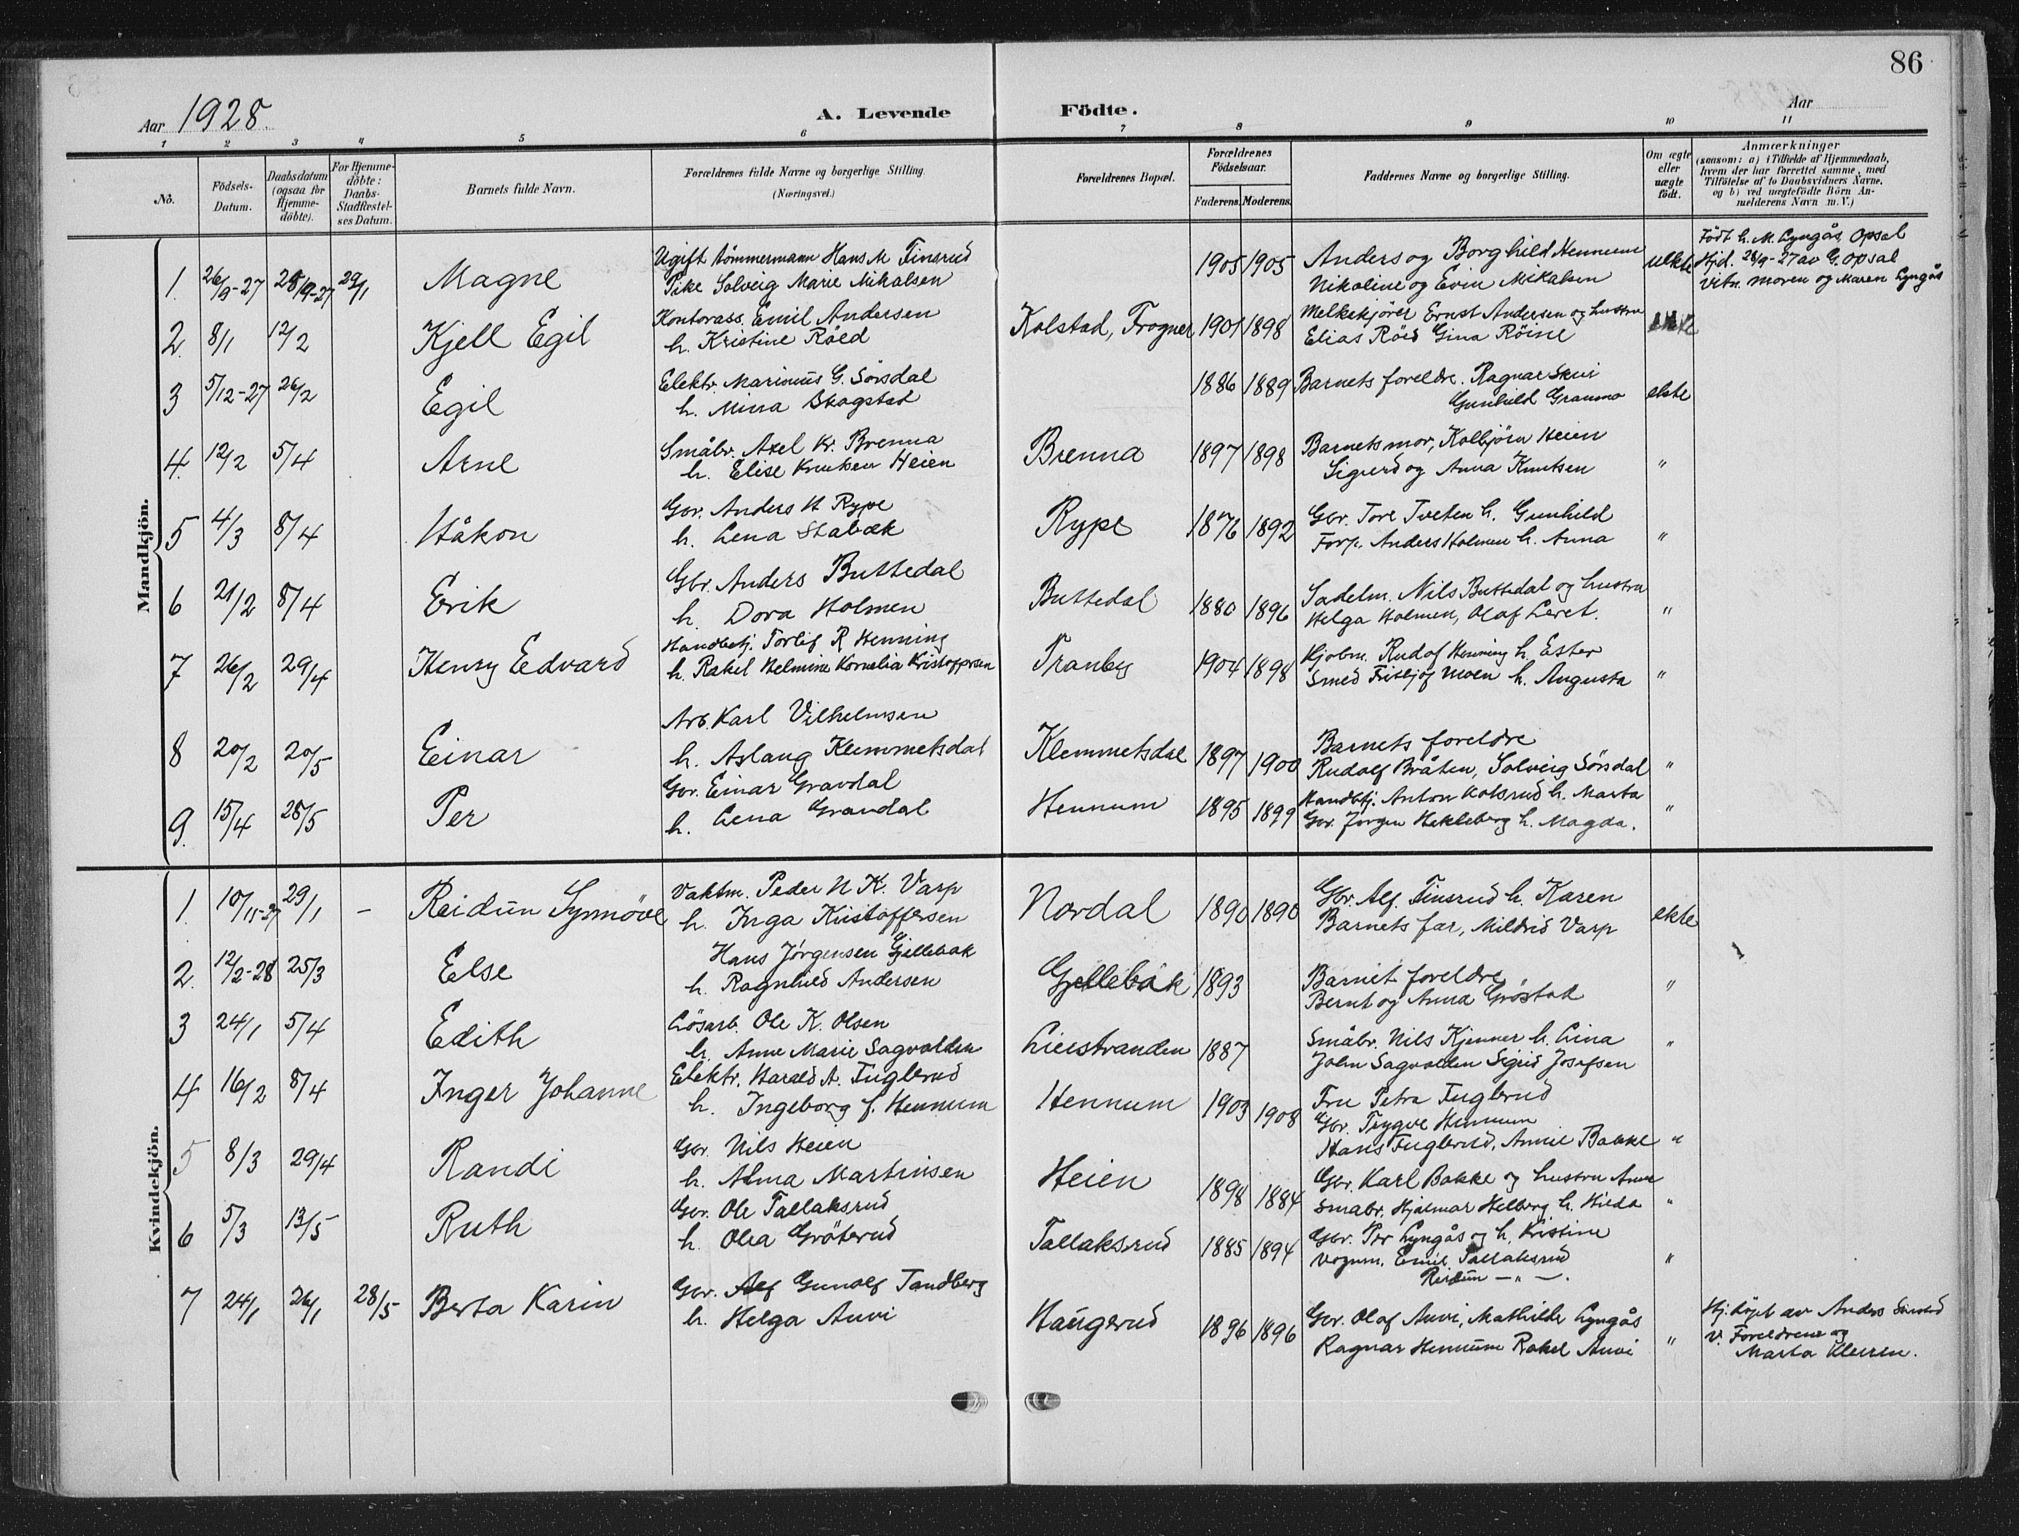 86
Aar 1928.
A. Levende Födte.
Aar
1 2 3 4 5 6 7 8 9 10 11
No.
Födsels-Datum.
Daabsdatum (ogsaa for Hjemme-döbte).
For Hjemme-döbte: Daabs-Stadfæstel-ses Datum.
Barnets fulde Navn.
Forældrenes fulde Navne og borgerlige Stilling. (Næringsvei.)
Forældrenes Bopæl.
Forældrenes Födselsaar.
Faderens. Moderens.
Faddernes Navne og borgerlige Stilling.
Om ægte eller uægte födt.
Anmærkninger
(saasom: a) i Tilfælde af Hjemmedaab,
hvem der har forrettet samme, med
Tilföielse af to Daabsvidners Navne,
og b) ved uegtefödte Börn An-
melderens Navn m. V.)
Mandkjön.
1. 26/9-27 28/9-27 29/1 Magne
Ugift tömmermann Hans M Finsrud
Pike Solveig Marie Mikalsen
1905 1905
Anders og Borghild Hennum
Nikoline og Mikalsen
uekte
Födt h. M. Lyngås, Opsal
Hjd. 28/9-27 av G. Opsal
Vitn. moren og Maren Lyngås
2. 8/1 12/2 Kjell Egil
Kontorass. Emil Andersen
h. Kristine Röed
Kolstad, Frogner 1901 1898
Melkekjörer Ernst Andersen og hustru
Elias Röed Gina Röine
ekte
3 5/12-27 26/2 Egil
Elektr. Marinius G. Sörsdal
h. Mina Skogstad
1886 1889
Barnets foreldre. Ragnar Skui
Gunhild Granmo
ekte
4. 12/2 5/4 Arne
Småbr. Axel Kr. Brenna
h. Elise Knutsen Heien
Brenna 1897 1898
Barnets mor, Kolbjörn Heien
Sigurd og Anna Knutsen
"
5 4/3 8/4 Håkon
Gbr. Anders H Rype
h. Lena Stabæk
Rype 1876 1892
Gbr. Tore Tveten h. Gunhild
Forp. Anders Holmen h. Anna
"
6 21/2 8/4 Erik
Gbr. Anders Buttedal
h. Dora Holmen
Buttedal 1880 1896
Sadelm. Nils Buttedal og hustru
Helga Holmen, Olaf Leret.
"
7 26/2 29/4 Henry Edvard
Handbetj. Torleif R Henning
h. Rakel Helmine Kornelia Kristoffersen
Tranby 1904 1898
Rudof Henning h. Ester
Smed Fritjof Moen h. Augusta
"
8 20/2 20/5 Einar
Arb. Karl Vilhelmsen
h. Aslaug Klemmetsdal
Klemmetsdal 1897 1900
Barnets foreldre
Rudolf Bråten, Solveig Sörsdal
"
9. 15/4 28/5 Per
Gbr. Einar Gravdal
h. Lena Gravdal
Hennum 1895 1899
Handbtj. Anton Kolsrud h. Marta
Gbr. Jörgen Hekleberg h. Magda.
"
Kvindekjön.
1. 10/11-27 29/1 – Reidun Synnöve
Vaktm. Peder N K. Varp
h. Inga Kristoffersen
Nordal 1890 1890
Gbr. Alf. Finsrud h. Karen
Barnets far, Mildrid Varp
ekte
2. 12/2-28 25/3 Else
Hans Jörgensen Gjellebæk
h. Ragnhild Andersen
Gjellebæk 1893
Barnets foreldre
Bernt og Anna Gröstad
"
3 24/1 5/4 Edith
Lösarb. Ole K. Olsen
h. Anne Marie Sagvolden
Lierstranden 1887
Småbr. Nils Kjenner h. Lina
John Sagvolden Sigrid Josefsen
"
4 16/2 8/4 Inger Johanne
Elektr. Harald A. Fuglerud
h. Ingeborg f. Hennum
Hennum 1903 1908
Fru Petra Fuglerud
Gbr. Trygve Hennum
Hans Fuglerud, Annie Bakke "
5 8/3 29/4 Randi
Gbr. Nils Heien
h. Alma Martinsen
Heien 1898 1884
Gbr. Karl Bakke og hustru Anne
Småbr. Hjalmar Helberg h. Hilda
"
6 5/3 13/5 Ruth
Gbr. Ole Tallaksrud
h. Olea Gröterud
Tallaksrud 1885 1894
Gbr. Per Lyngås og h. Kristine
Vognm. Emil Tallaksrud
Reidun — " —.
"
7 24/1 26/1 28/5 Berta Karin
Gbr. Alf Gunolf Tandberg
h. Helga Auvi
Haugerud 1896 1896
Gbr. Olaf Auvi, Mathilde Lyngås
Ragnar Hennum Rakel Auvi
"
Hj.döpt av Anders
v. Foreldrene og
Marta